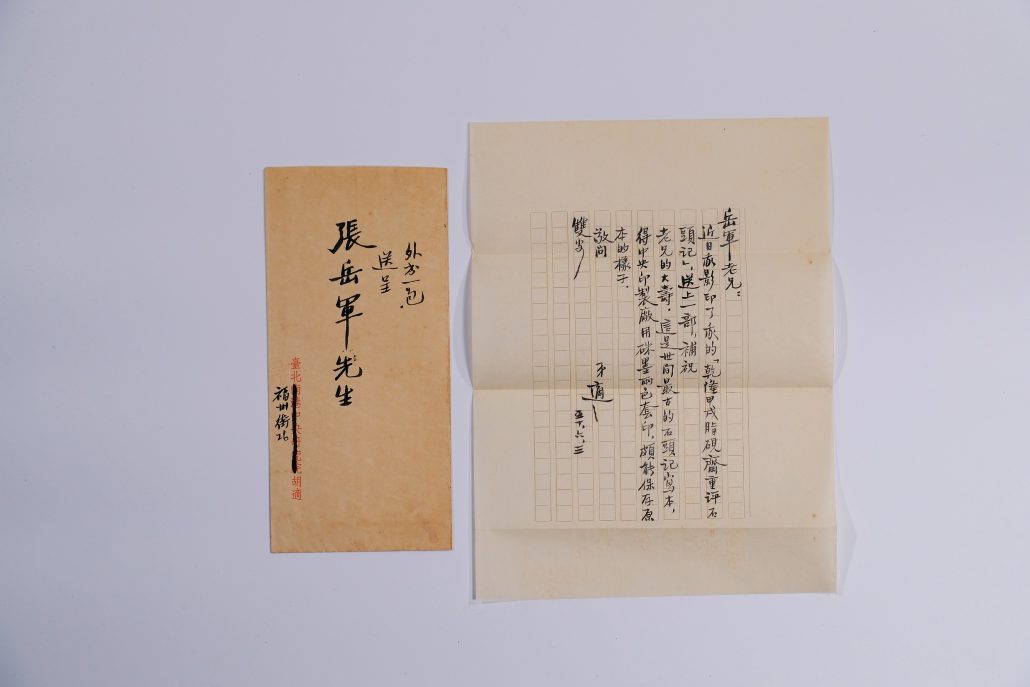 外書一包.
送呈
張岳軍先生
臺北南港中央研究院胡適
福州街26
岳軍老兄：
近日我影印了我的「乾隆甲戌脂硯齋重評石
頭記」，送上一部，補祝
老兄的大壽。這是世間最古的石頭記寫本，
得中央印製廠用硃墨兩色套印，頗能保存原
本的樣子.
敬問
雙安
弟適
五十、六、三